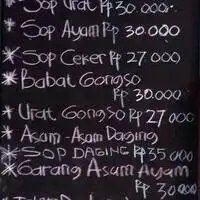 * Sop Urat Rp 30.000.-
* Sop Ayam Rp 30.000
* Sop Ceker Rp 27 000
* Babat Gongso
Rp 30.000
* Urat Gongso Rp 27 000
* Asam-Asam Daging
* SOP DAGING Rp 35.000
* Garang Asam Ayam
Rp 30 000